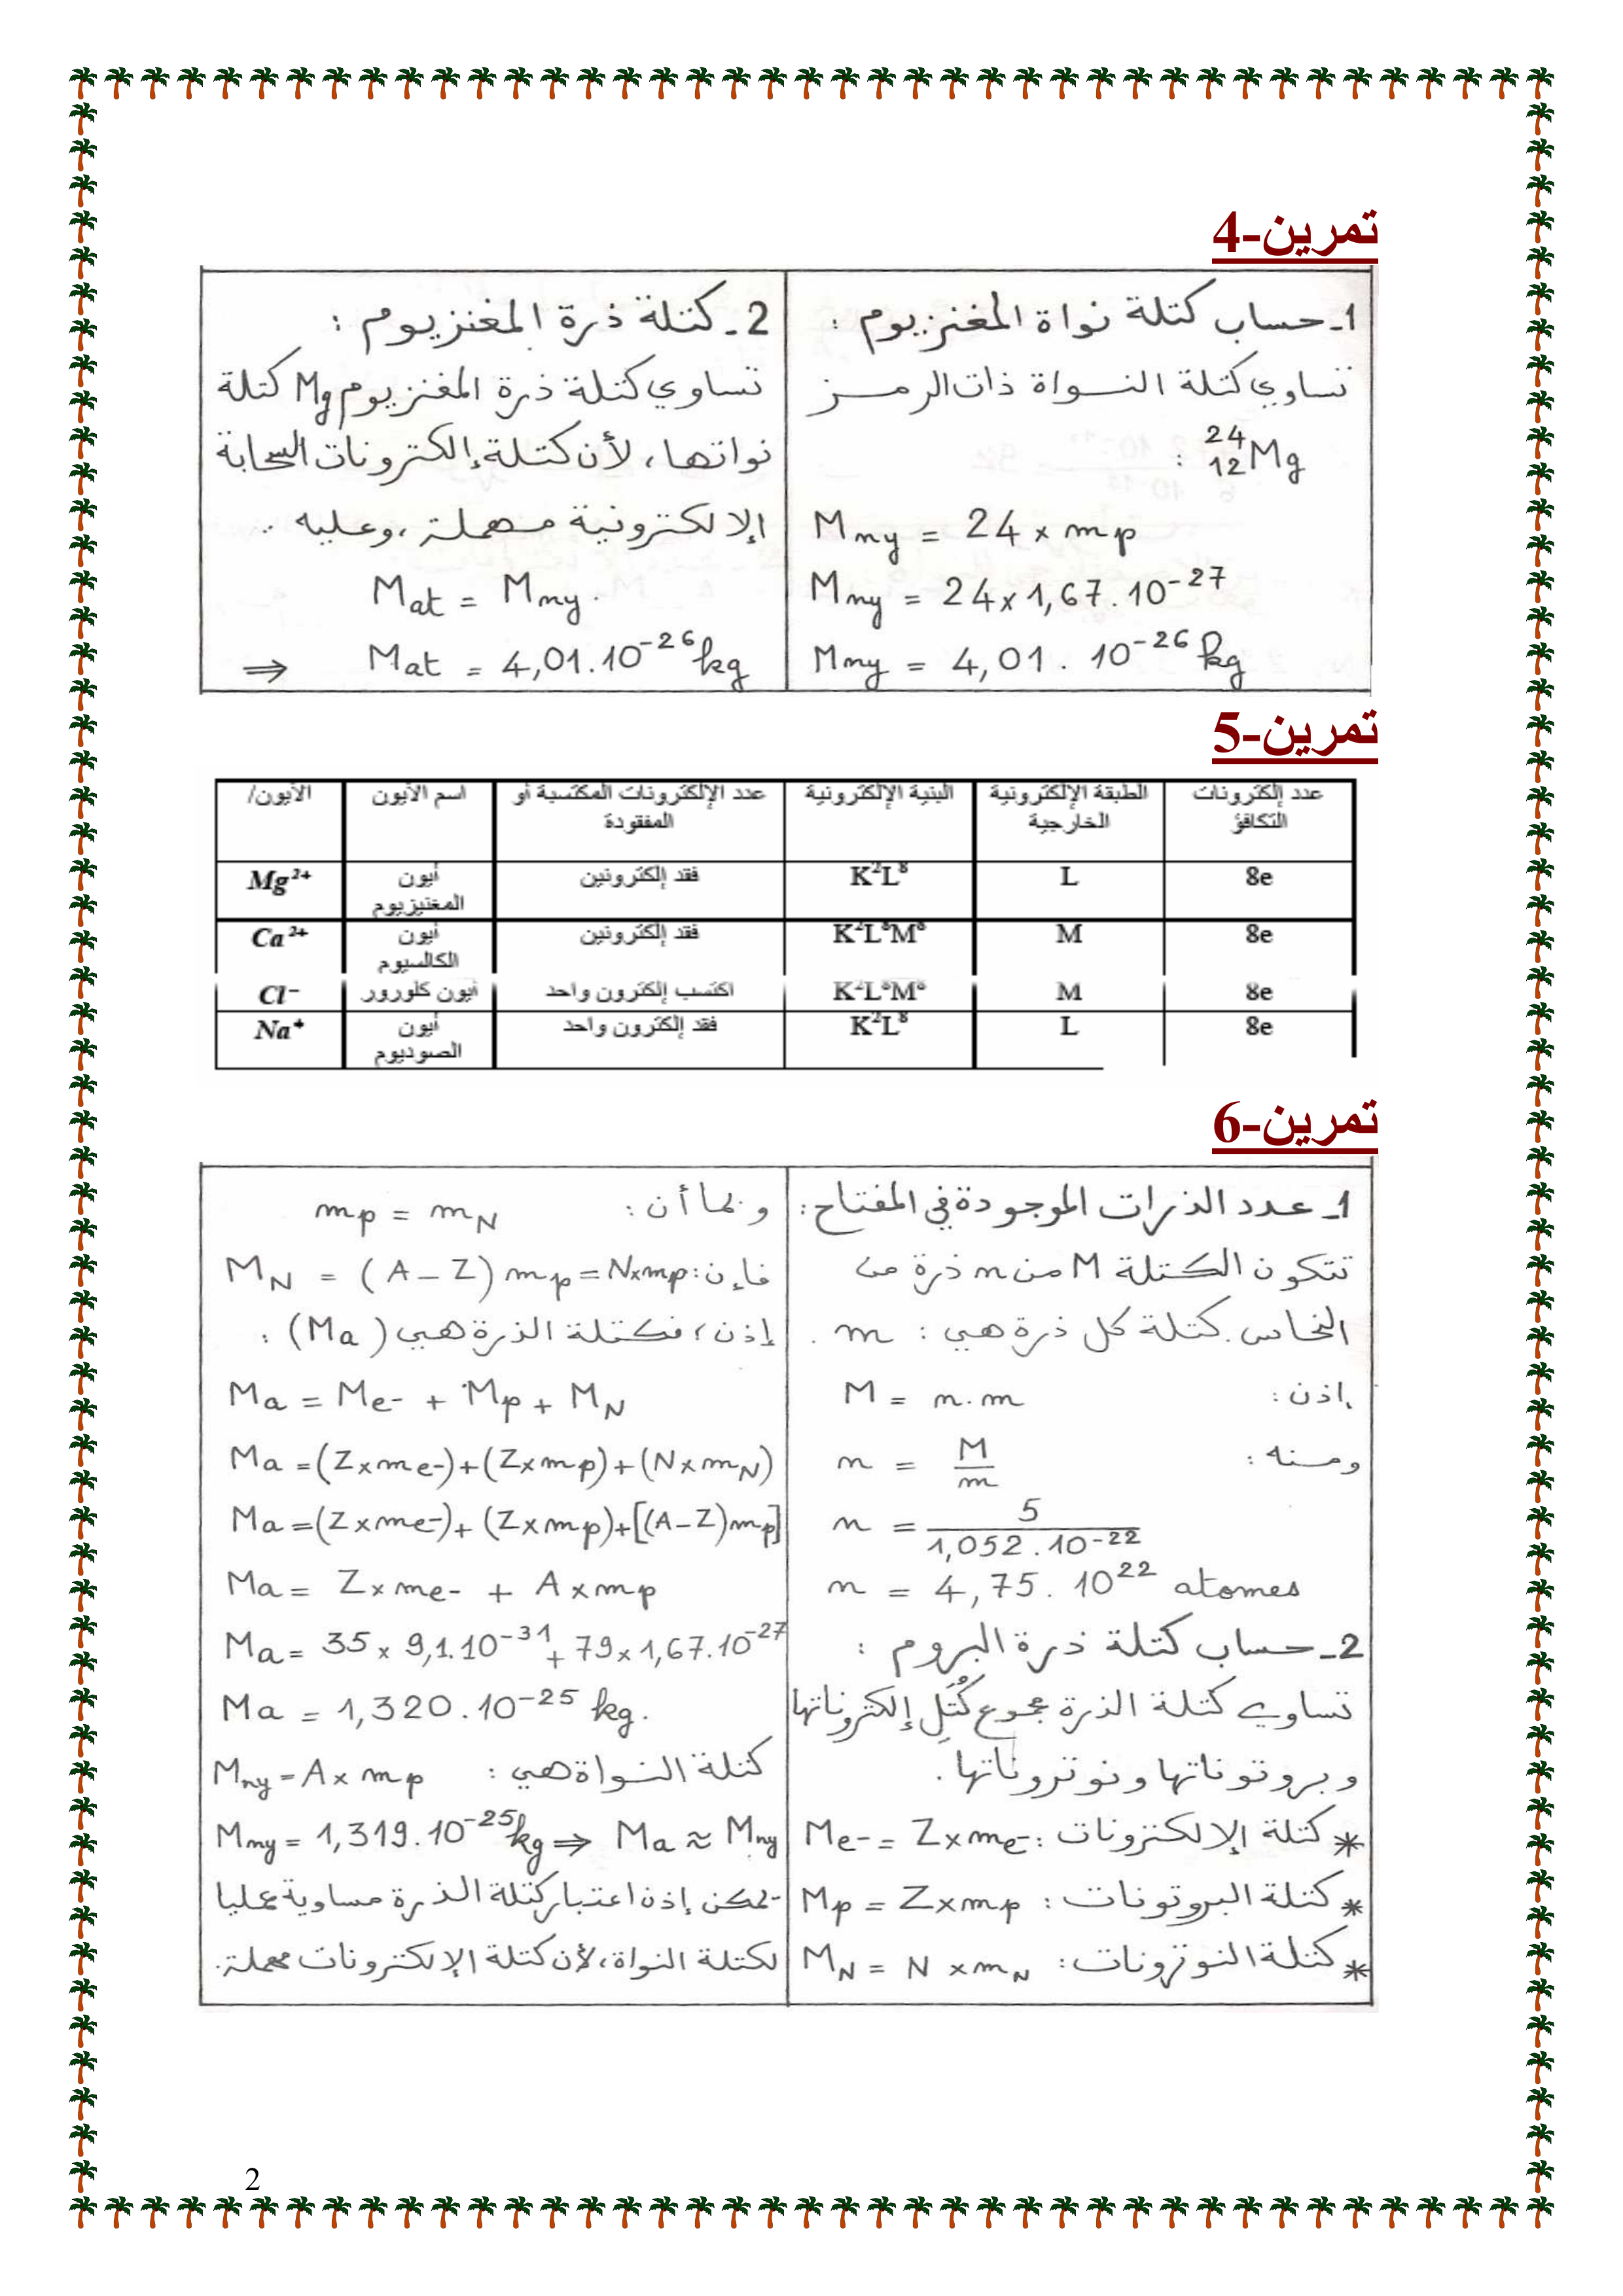 تمرين-4
1ـ حساب كتلة نواة المغنزيوم :
تساوي كتلة النـواة ذات الرمـز
²⁴₁₂Mg :
M ny = 24 x mp
M ny = 24 x 1,67 . 10⁻²⁷
M ny = 4,01 . 10⁻²⁶ kg
2ـ كتلة ذرة المغنزيوم :
تساوي كتلة ذرة المغنزيوم Mg كتلة
نواتها، لأن كتلة إلكترونات السحابة
الإلكترونية مهملة، وعليه :
M at = M ny .
⇒ M at = 4,01.10⁻²⁶ kg
تمرين-5
الأيون/ | اسم الأيون | عدد الإلكترونات المكتسبة أو المفقودة | البنية الإلكترونية | الطبقة الإلكترونية الخارجية | عدد إلكترونات التكافؤ
Mg²⁺ | أيون المغنيزيوم | فقد إلكترونين | K²L⁸ | L | 8e
Ca²⁺ | أيون الكالسيوم | فقد إلكترونين | K²L⁸M⁸ | M | 8e
Cl⁻ | أيون كلورور | اكتسب إلكترون واحد | K²L⁸M⁸ | M | 8e
Na⁺ | أيون الصوديوم | فقد إلكترون واحد | K²L⁸ | L | 8e
تمرين-6
1ـ عدد الذرات الموجودة في المفتاح :
تتكون الكتلة M من n ذرة من
النحاس. كتلة كل ذرة هي : m .
إذن : M = n . m
ومنه : n = M / m
n = 5 / 1,052 . 10⁻²²
n = 4,75 . 10²² atomes
2ـ حساب كتلة ذرة البروم :
تساوي كتلة الذرة مجموع كُتَلِ إلكتروناتها
وبروتوناتها ونوتروناتها .
* كتلة الإلكترونات : Me- = Z x me-
* كتلة البروتونات : Mp = Z x mp
* كتلة النوترونات : M N = N x m N
وبما أن : mp = m N
فإن : M N = (A - Z) mp = N x mp
إذن، فكتلة الذرة هي (Ma) :
Ma = Me- + Mp + M N
Ma = (Z x me-) + (Z x mp) + (N x m N)
Ma = (Z x me-) + (Z x mp) + [(A - Z) mp]
Ma = Z x me- + A x mp
Ma = 35 x 9,1.10⁻³¹ + 79 x 1,67.10⁻²⁷
Ma = 1,320 . 10⁻²⁵ kg .
كتلة النواة هي : M ny = A x mp
M ny = 1,319 . 10⁻²⁵ kg ⇒ Ma ≈ M ny
يمكن إذن اعتبار كتلة الذرة مساوية عمليا
لكتلة النواة، لأن كتلة الإلكترونات مهملة.
2